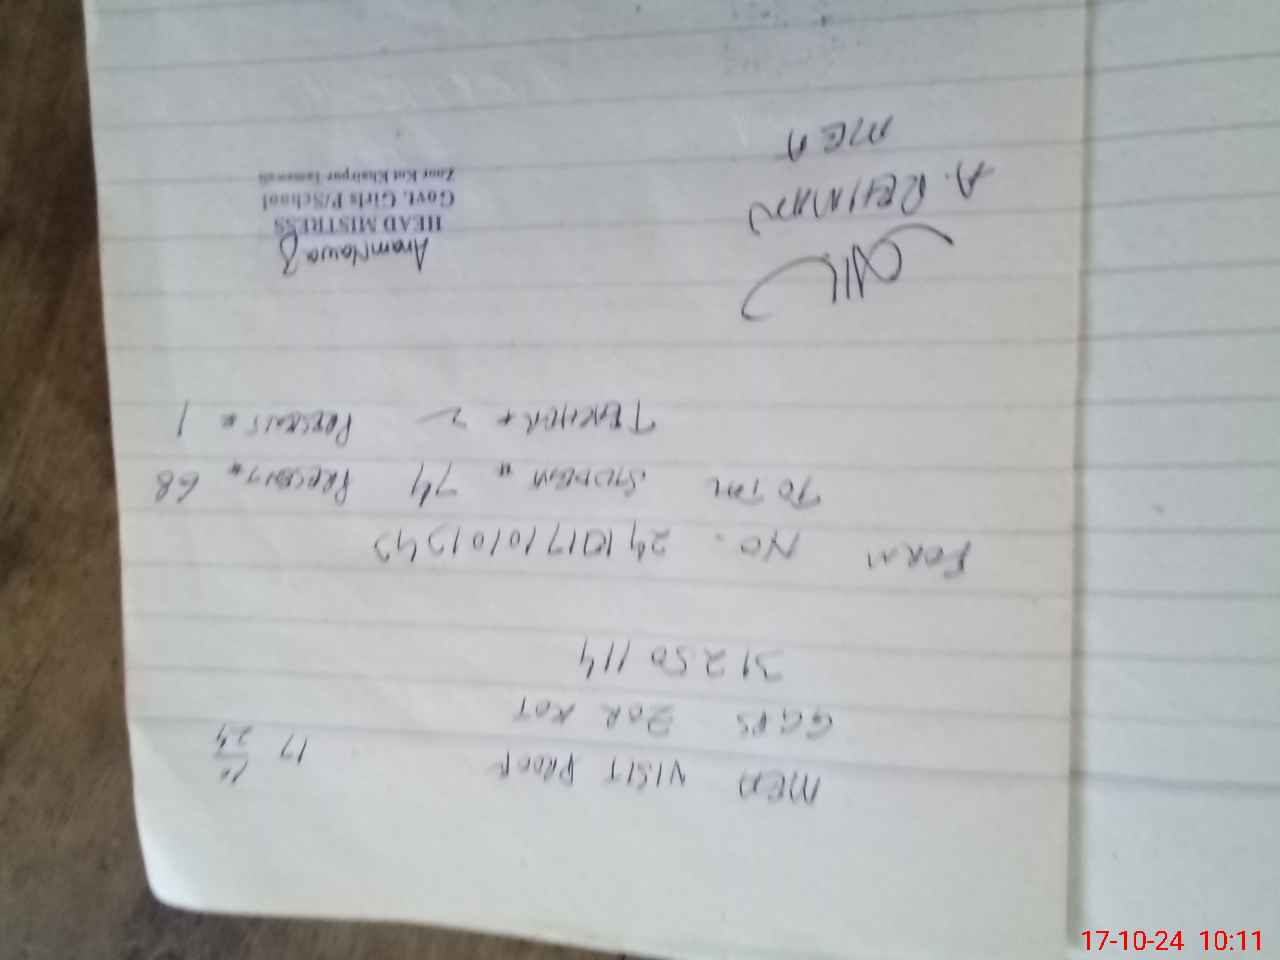 MEA VISIT PROOF 17 10/24
GGPS ZOR KOT
31250114
FORM NO. 24101710101343
TOTAL STUDENT = 74 PRESENT = 68
TEACHER = 2 PRESENT = 1
A. REHMAN
MEA
Aram Nawab
HEAD MISTRESS
Govt. Girls P/School
Zoor Kot Khairpur Tamewali
17-10-24 10:11